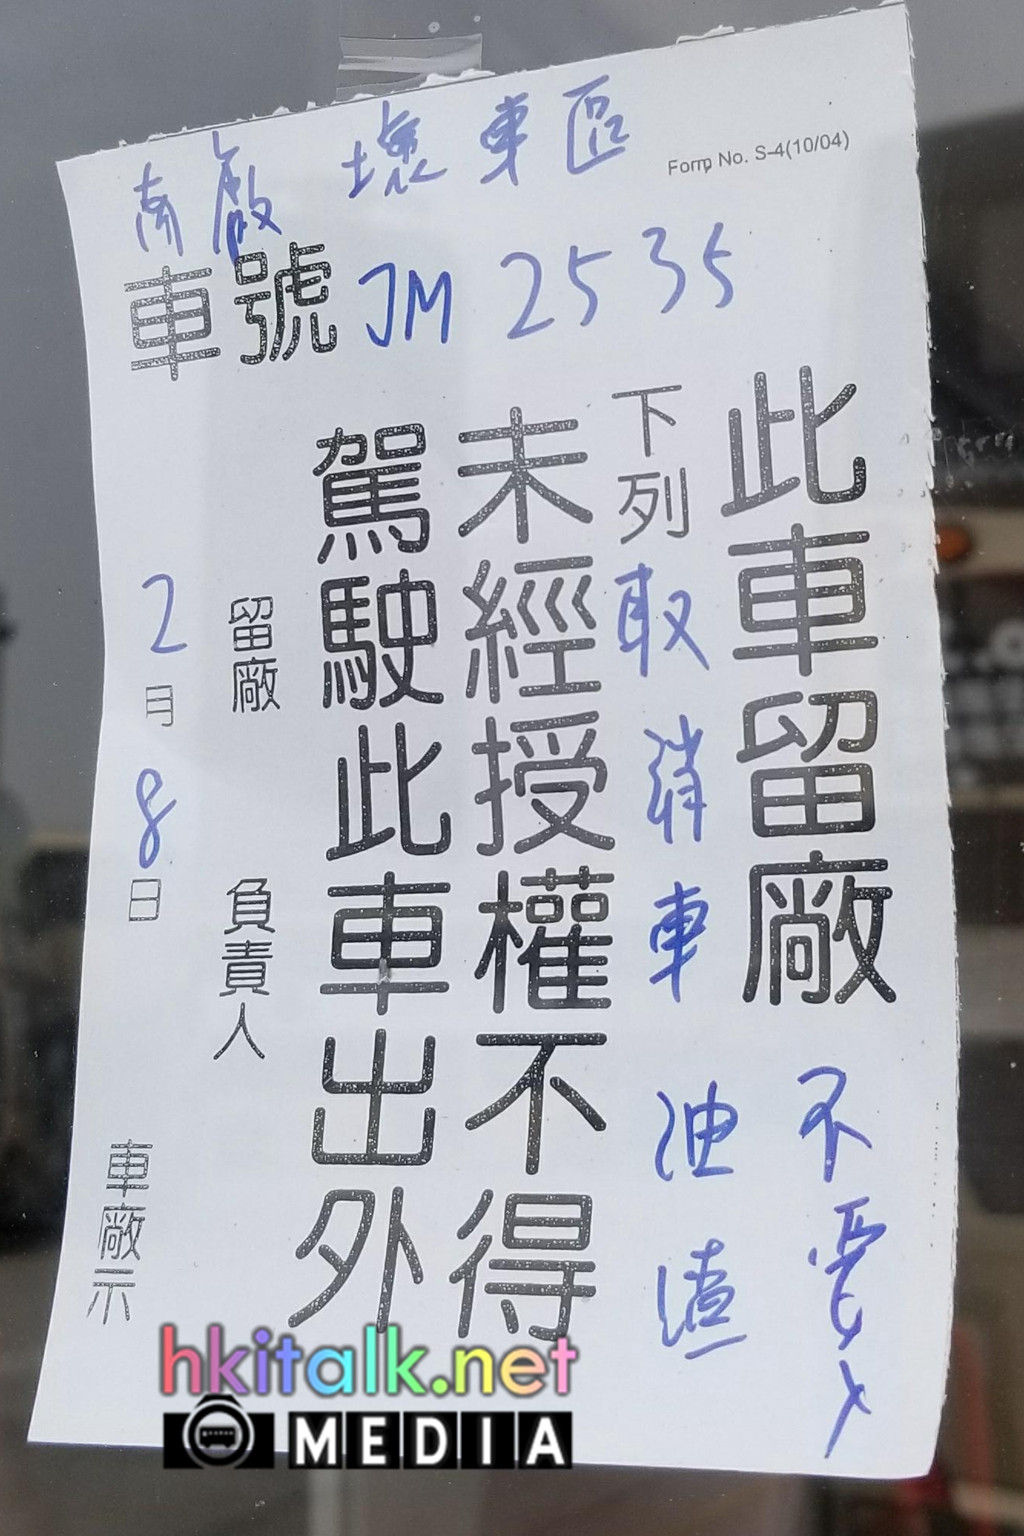 南廠 壞車區
Form No. S-4(10/04)
車號 JM 2535
此車留廠
不要入
下列取消車
油渣
未經授權不得
駕駛此車出外
留廠
負責人
2月8日
車廠示
hkitalk.net
MEDIA